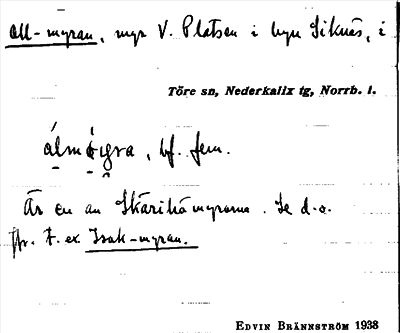 all-myran, myr V. Platsen i byn Siknäs, i
Töre sn, Nederkalix tg, Norrb. l.
bf. fem.
Är en av Skärikåmyrarna. Se d.o.
jfr. t. ex. Isak-myran.
EDVIN BRÄNNSTRÖM 1938